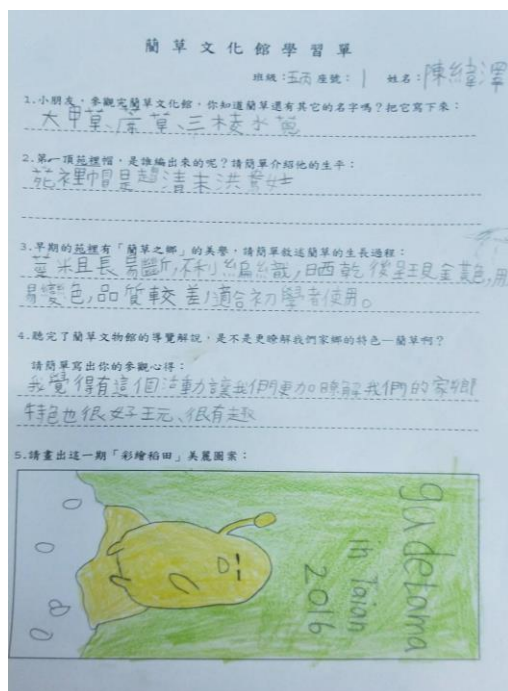 藺草文化館學習單
班級：五丙 座號：1 姓名：陳緯澤
1.小朋友，參觀完藺草文化館，你知道藺草還有其它的名字嗎？把它寫下來：
大甲草、蓆草、三棱水蔥
2.第一頂苑裡帽，是誰編出來的呢？請簡單介紹他的生平：
苑裡帽是趙清末洪鴦女士
3.早期的苑裡有「藺草之鄉」的美譽，請簡單敘述藺草的生長過程：
莖米且長易斷,不利編織,晒乾後呈現金黃色,用
易變色,品質較差,適合初學者使用。
4.聽完了藺草文物館的導覽解說，是不是更瞭解我們家鄉的特色—藺草啊？
請簡單寫出你的參觀心得：
我覺得有這個活動讓我們更加瞭解我們的家鄉
特色也很好玩、很有趣
5.請畫出這一期「彩繪稻田」美麗圖案：
gudetama
in Taian
2016